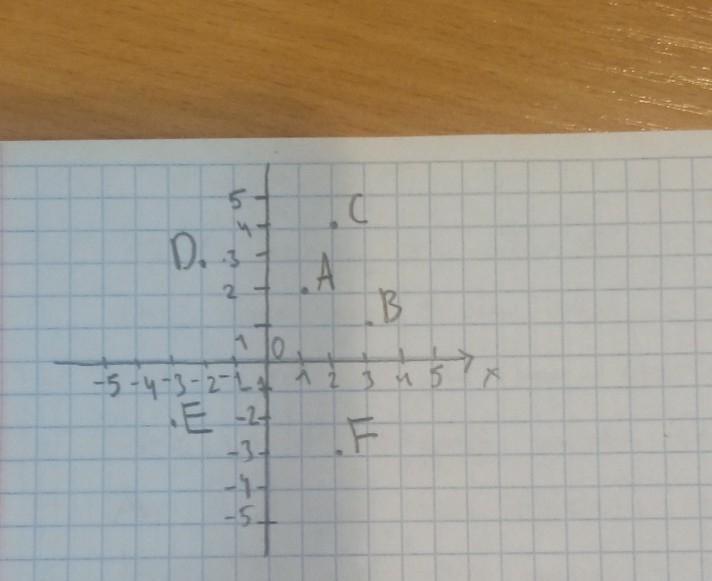 5
C
4
D. 3
A
2
B
1 0
-5 -4 -3 -2 -1 1 2 3 4 5 x
E -2
F
-3
-4
-5